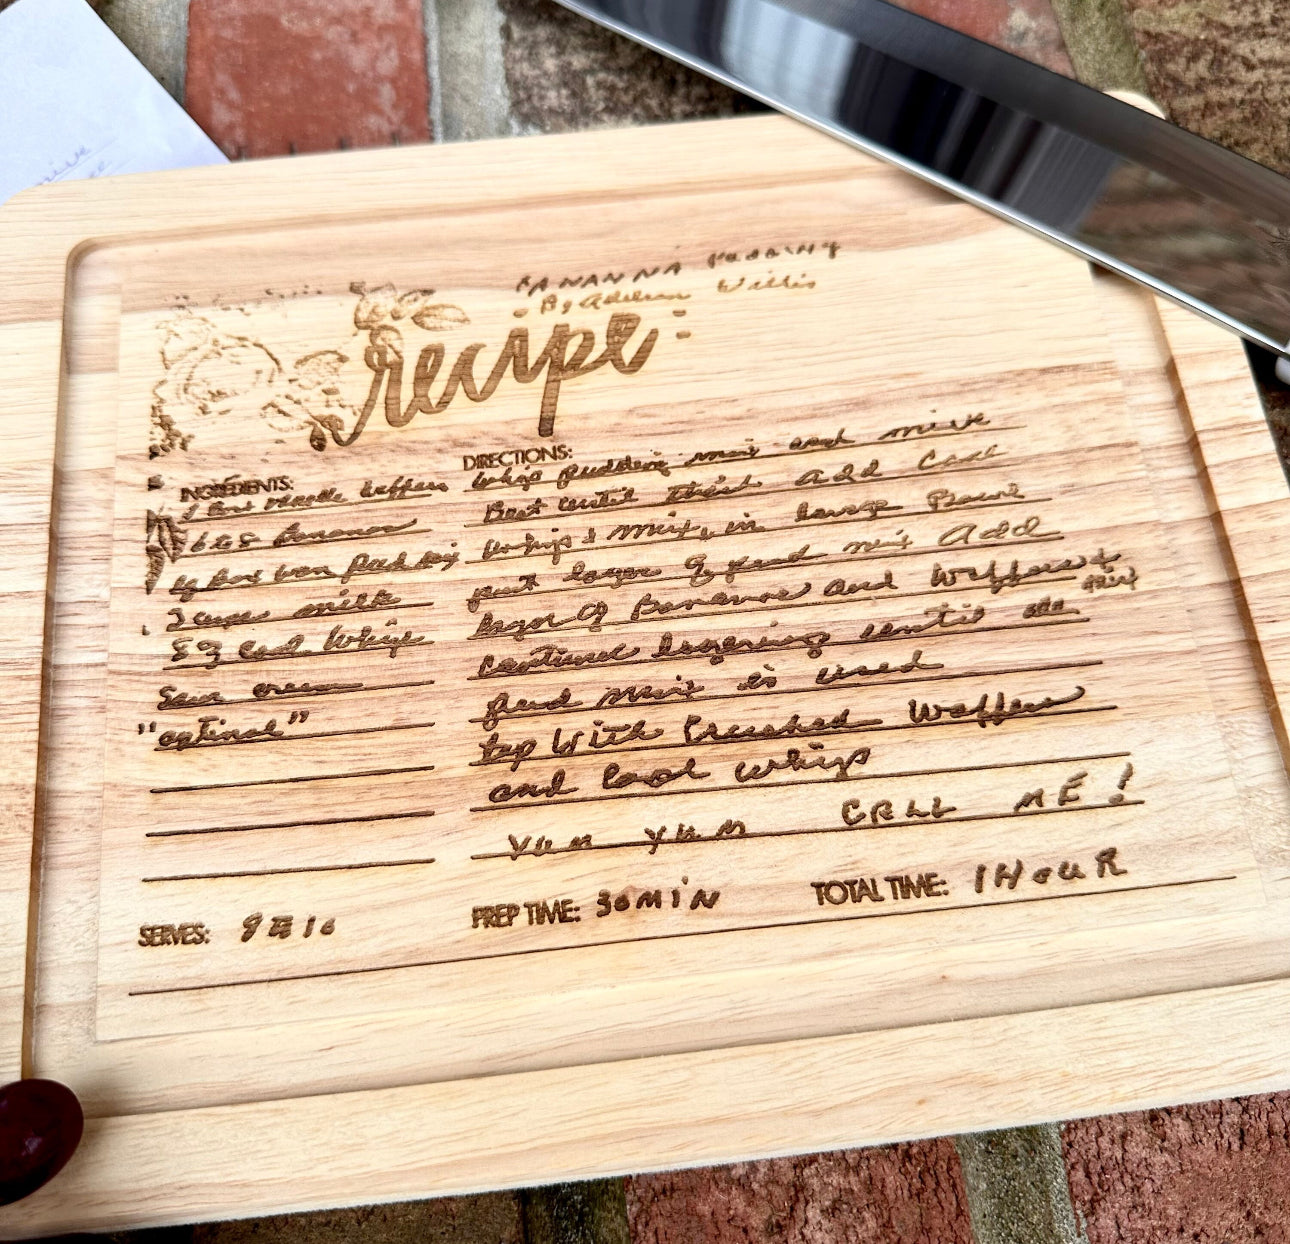 BANANNA PUDDING
By Adrian Willis
recipe
INGREDIENTS:
1 Box Nilla Waffers
6 to 8 bananas
box van pud mix
3 cups milk
8 oz cool Whip
Sour cream
"optional"
DIRECTIONS:
Whip pudding mix and milk
Beat until thick Add Cool
Whip & mix, in large Bowl
put layer of pud mix Add
layer of Bananas and Waffers
continue layering until all
pud mix is used
top With Crushed Waffers
and Cool whip
YUM YUM CALL ME!
SERVES: 8 to 10
PREP TIME: 30 MIN
TOTAL TIME: 1 HOUR